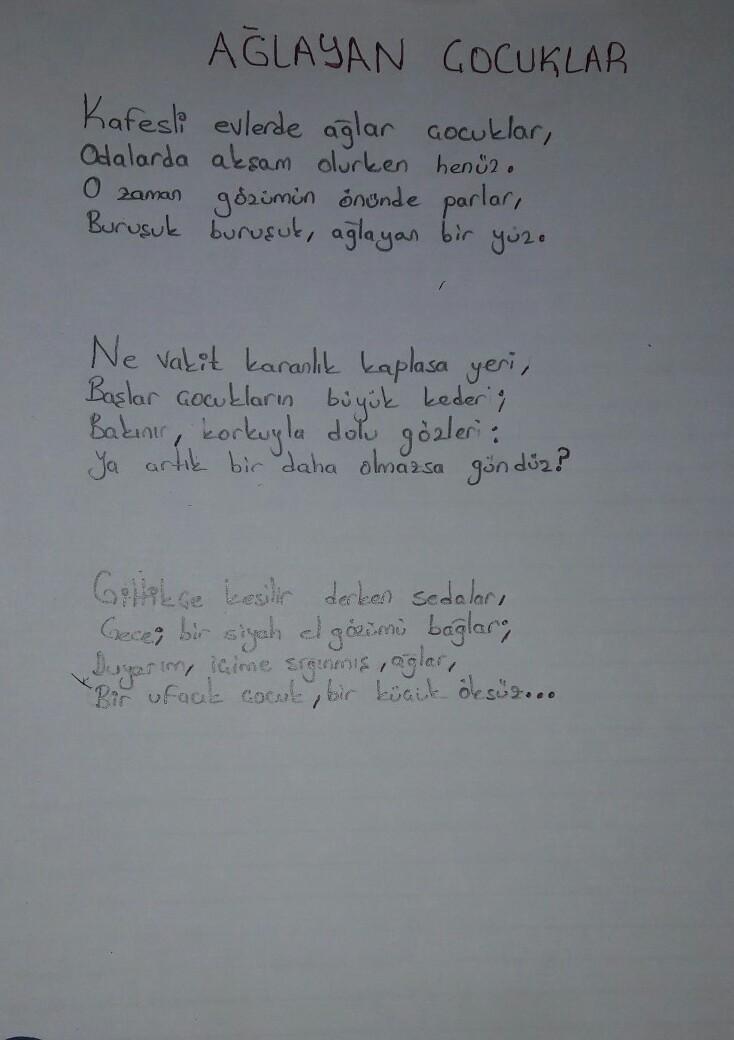 AĞLAYAN ÇOCUKLAR
Kafesli evlerde ağlar çocuklar,
Odalarda akşam olurken henüz.
O zaman gözümün önünde parlar,
Buruşuk buruşuk, ağlayan bir yüz.
Ne vakit karanlık kaplasa yeri,
Başlar çocukların büyük kederi;
Bakınır, korkuyla dolu gözleri:
Ya artık bir daha olmazsa gündüz?
Gittikçe kesilir derken sedalar,
Gece; bir siyah el gözümü bağlar;
Duyarım, içime sığınmış, ağlar,
Bir ufacık çocuk, bir küçük öksüz...